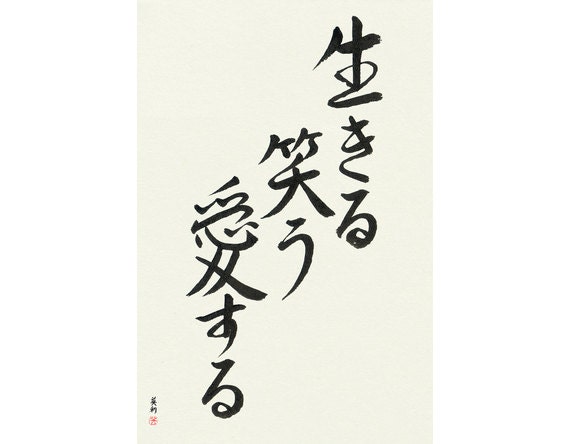 生きる
笑う
愛する
英利